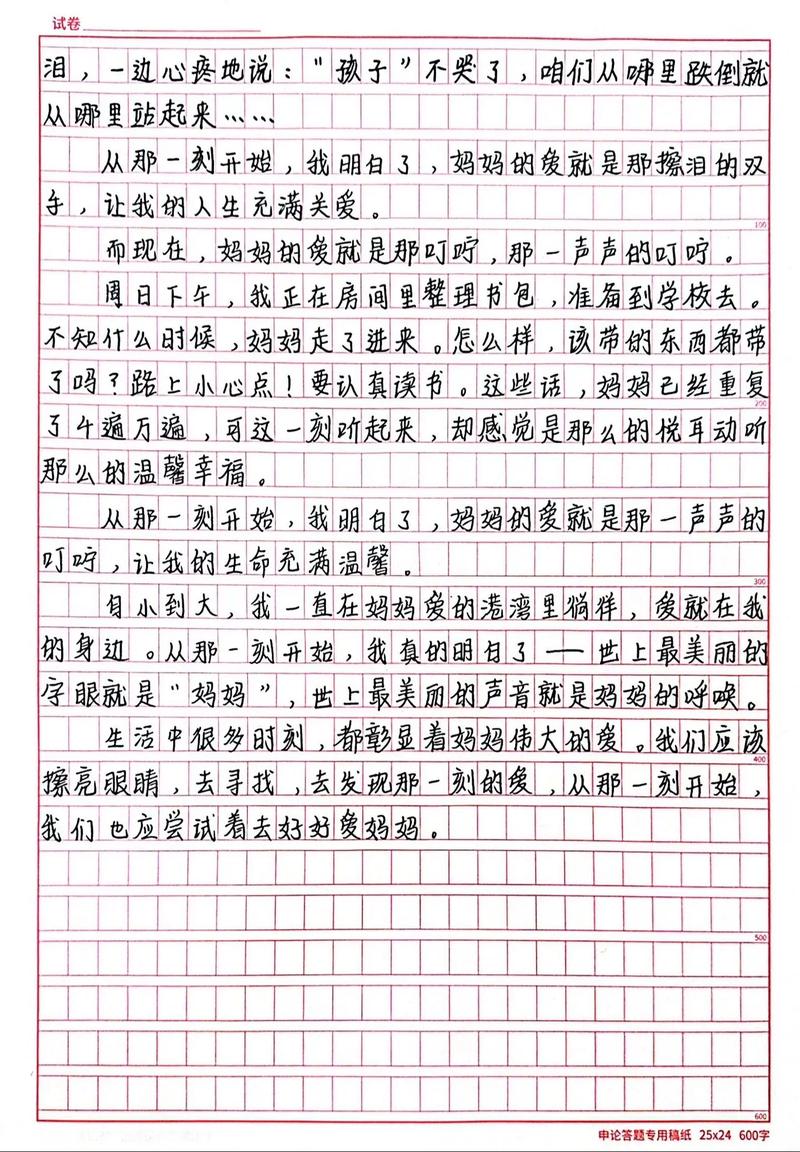 试卷
泪，一边心疼地说："孩子"不哭了，咱们从哪里跌倒就
从哪里站起来……
从那一刻开始，我明白了，妈妈的爱就是那擦泪的双
手，让我的人生充满关爱。
100
而现在，妈妈的爱就是那叮咛，那一声声的叮咛。
周日下午，我正在房间里整理书包，准备到学校去。
不知什么时候，妈妈走了进来。怎么样，该带的东西都带
了吗？路上小心点！要认真读书。这些话，妈妈已经重复
200
了千遍万遍，可这一刻听起来，却感觉是那么的悦耳动听
那么的温馨幸福。
从那一刻开始，我明白了，妈妈的爱就是那一声声的
叮咛，让我的生命充满温馨。
300
自小到大，我一直在妈妈爱的港湾里徜徉，爱就在我
的身边。从那一刻开始，我真的明白了——世上最美丽的
字眼就是"妈妈"，世上最美丽的声音就是妈妈的呼唤。
生活中很多时刻，都彰显着妈妈伟大的爱。我们应该
400
擦亮眼睛，去寻找，去发现那一刻的爱，从那一刻开始，
我们也应尝试着去好好爱妈妈。
500
600
申论答题专用稿纸 25x24 600字